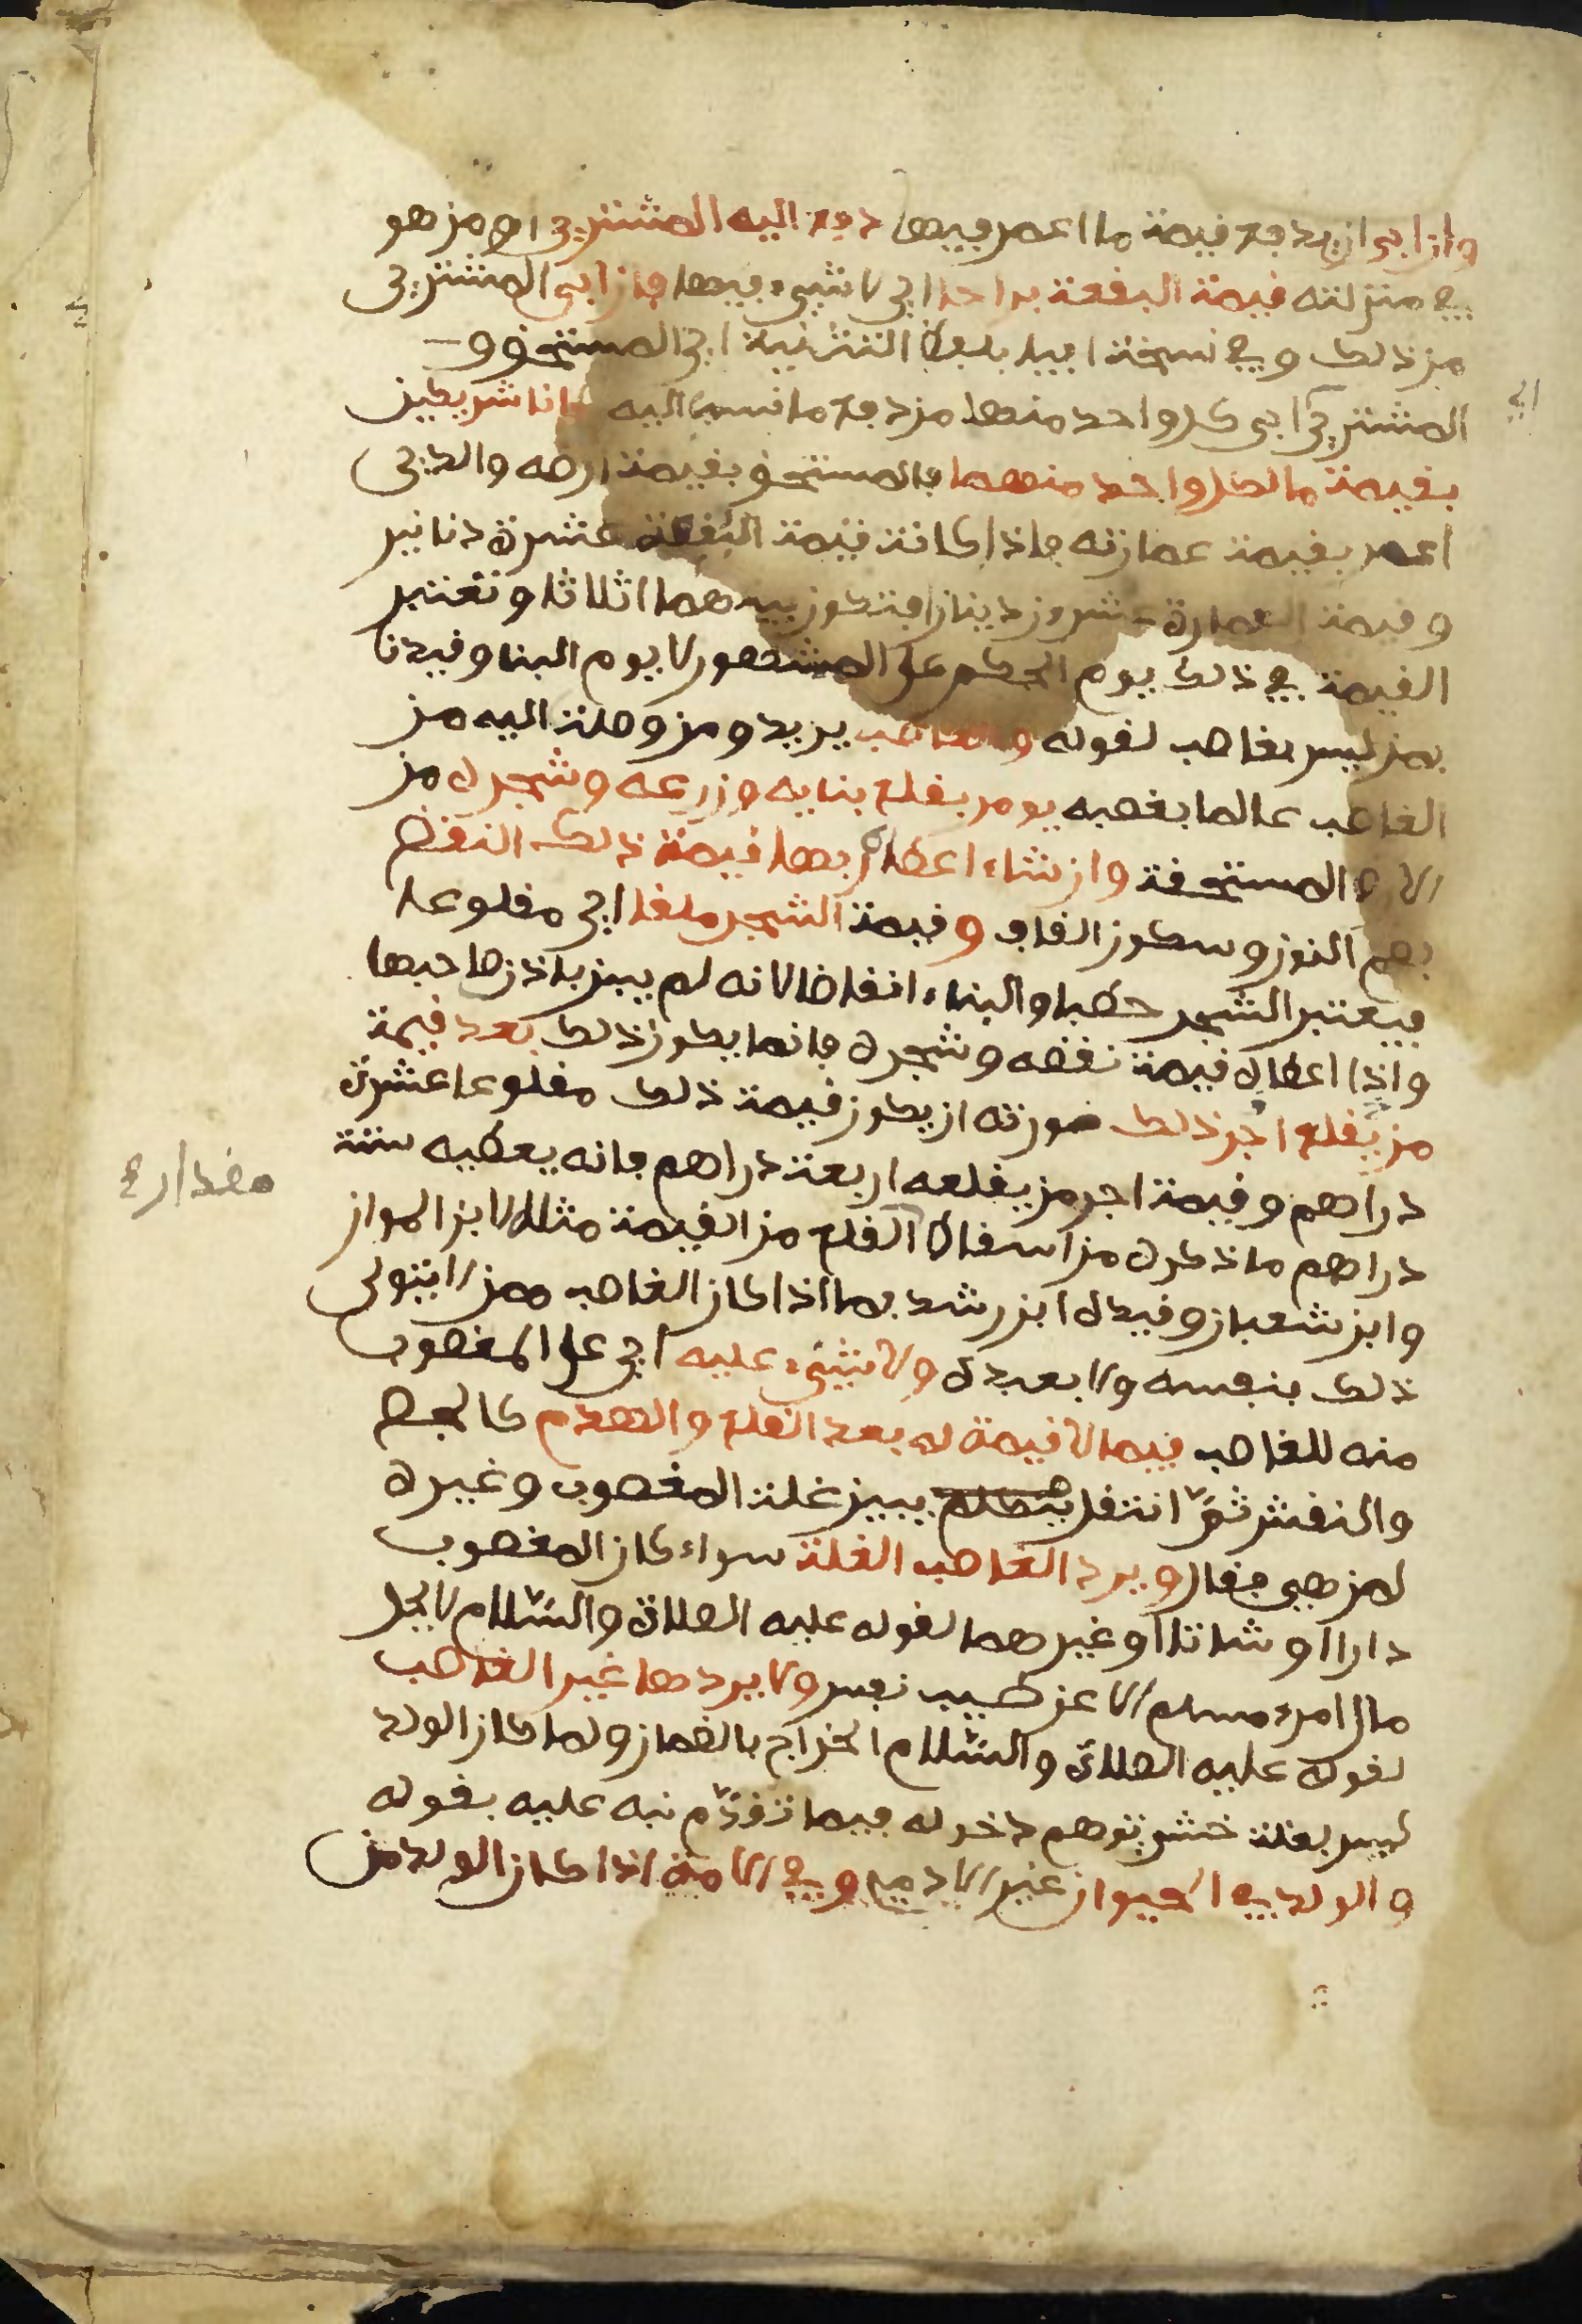 وان ابى ان يدفع قيمة ما اعمر فيها دفع اليه المشتري او من هو
في منزلته قيمة البقعة براحا اي لا شيء فيها فان ابى المشتري
من ذلك وفي نسخة ابيا بلفظ التثنية اي المستحق و
المشتري ابى كل واحد منهما من دفع ما نسب اليه كانا شريكين
بقيمة ما لكل واحد منهما فالمستحق بقيمة ارضه والذي
اعمر بقيمة عمارته فاذا كانت قيمة البقعة عشرة دنانير
وقيمة العمارة عشرون دينارا فتكون بينهما اثلاثا وتعتبر
القيمة في ذلك يوم الحكم على المشهور لا يوم البنا وقيدنا
بمن ليس بغاصب لقوله والغاصب يريد ومن وصلت اليه من
الغاصب عالما بغصبه يومر بقلع بنايه وزرعه وشجره من
الارض المستحقة وان شاء اعطاه ربها قيمة ذلك النقض
بضم النون وسكون القاف وقيمة الشجر ملقا اي مقلوعا
فيعتبر الشجر حطبا والبناء انقاضا لانه لم يبن باذن صاحبها
واذا اعطاه قيمة نقضه وشجره فانما يكون ذلك بعد قيمة
من يقلع اجر ذلك صورته ان يكون قيمة ذلك مقلوعا عشرة
دراهم وقيمة اجر من يقلعه اربعة دراهم فانه يعطيه ستة
دراهم ما ذكره من اسقاط القلع من القيمة مثله لابن المواز
وابن شعبان وقيده ابن رشد بما اذا كان الغاصب ممن لا يتولى
ذلك بنفسه ولا بعبده ولا شيء عليه اي على المغصوب
منه للغاصب فيما لا قيمة له بعد القلع والهدم كالجص
والنقش ثم انتقل يتكلم يبين غلة المغصوب وغيره
لمن هي فقال ويرد الغاصب الغلة سواء كان المغصوب
دارا او شاتا او غيرهما لقوله عليه الصلاة والسلام لا يحل
مال امرء مسلم الا عن طيب نفس ولا يردها غير الغاصب
لقوله عليه الصلاة والسلام الخراج بالضمان ولما كان الولد
ليس بغلة خشي توهم دخوله فيما تقدم نبه عليه بقوله
والولد في الحيوان غير الادمي وفي الامة اذا كان الولد من
اي
مقدار ٤